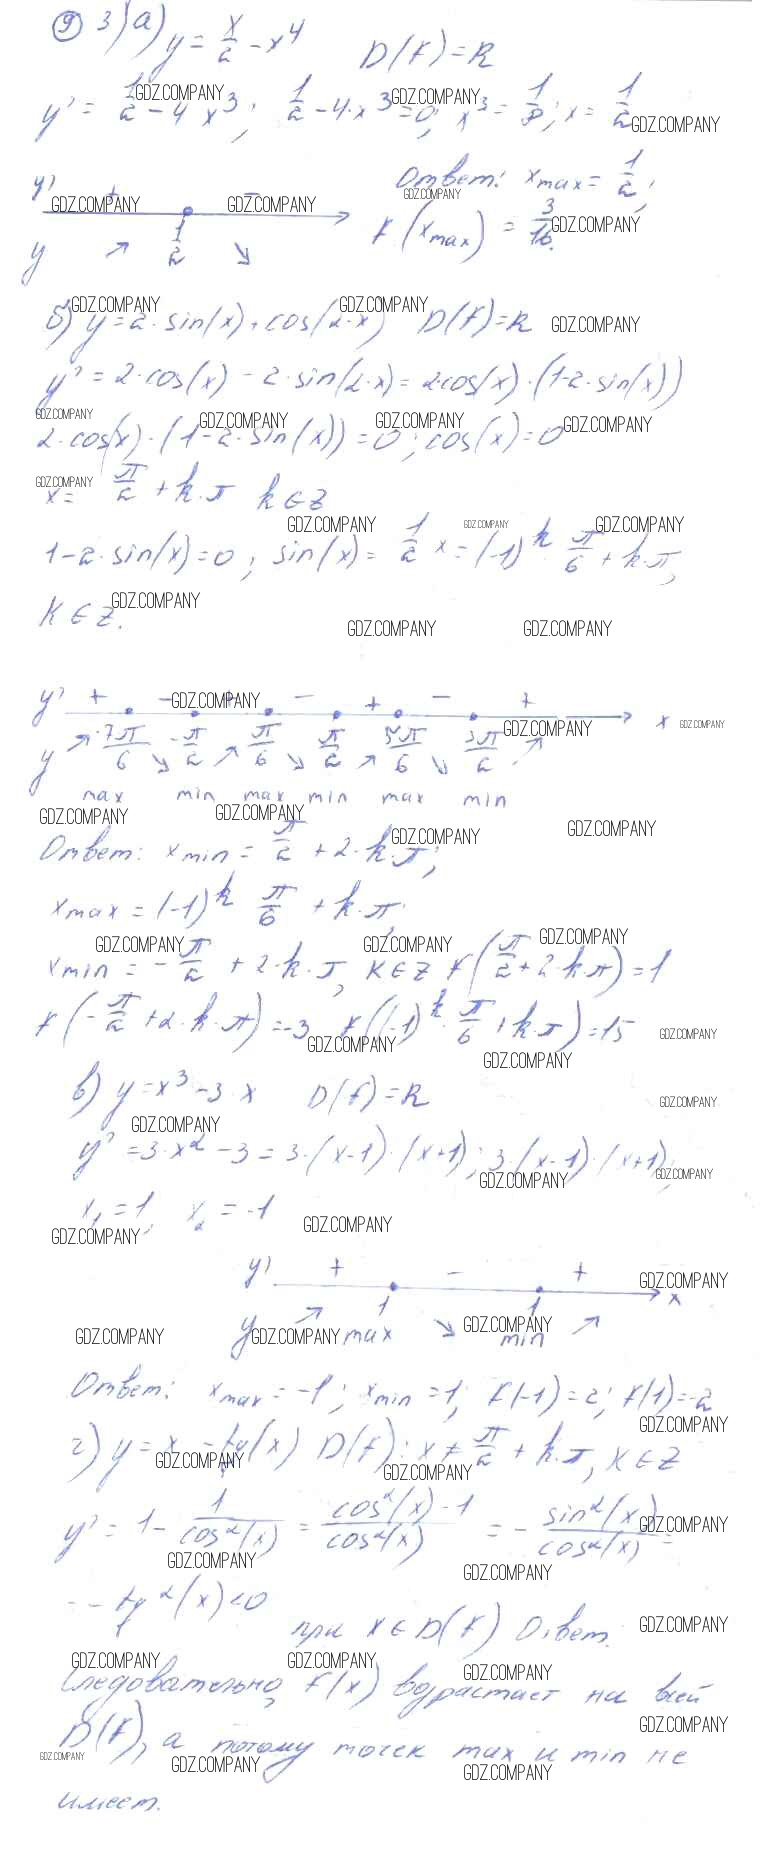 9 3) а) y = x/2 - x⁴ D(f) = R
y' = 1/2 - 4 x³; 1/2 - 4·x³ = 0; x³ = 1/8; x = 1/2
y' + - Ответ: x max = 1/2;
y ↗ 1/2 ↘ f(x max) = 3/16.
б) y = 2·sin(x) + cos(2·x) D(f) = R
y' = 2·cos(x) - 2·sin(2·x) = 2cos(x)·(1-2·sin(x))
2·cos(x)·(1-2·sin(x)) = 0; cos(x) = 0
x = π/2 + k·π k ∈ Z
1-2·sin(x) = 0; sin(x) = 1/2 x = (-1)^k · π/6 + k·π,
K ∈ Z.
y' + - + - + - + x
y ↗ -7π/6 ↘ -π/2 ↗ π/6 ↘ π/2 ↗ 5π/6 ↘ 3π/2 ↗
max min max min max min
Ответ: x min = π/2 + 2·k·π;
x max = (-1)^k π/6 + k·π;
x min = -π/2 + 2·k·π, K ∈ Z f(π/2 + 2·k·π) = 1
f(-π/2 + 2·k·π) = -3 f((-1)^k · π/6 + k·π) = 15
в) y = x³ - 3·x D(f) = R
y' = 3·x² - 3 = 3·(x-1)·(x+1); 3·(x-1)·(x+1);
x₁ = 1, x₂ = -1
y' + - + x
y ↗ 1 max ↘ 1 min ↗
Ответ: x max = -1; x min = 1; f(-1) = 2; f(1) = -2
г) y = x - tg(x) D(f): x ≠ π/2 + k·π, K ∈ Z
y' = 1 - 1/cos²(x) = cos²(x)-1/cos²(x) = - sin²(x)/cos²(x) =
= - tg²(x) < 0
при x ∈ D(f) Ответ.
Следовательно, f(x) возрастает на всей
D(f), а потому точек max и min не
имеет.
GDZ.COMPANY